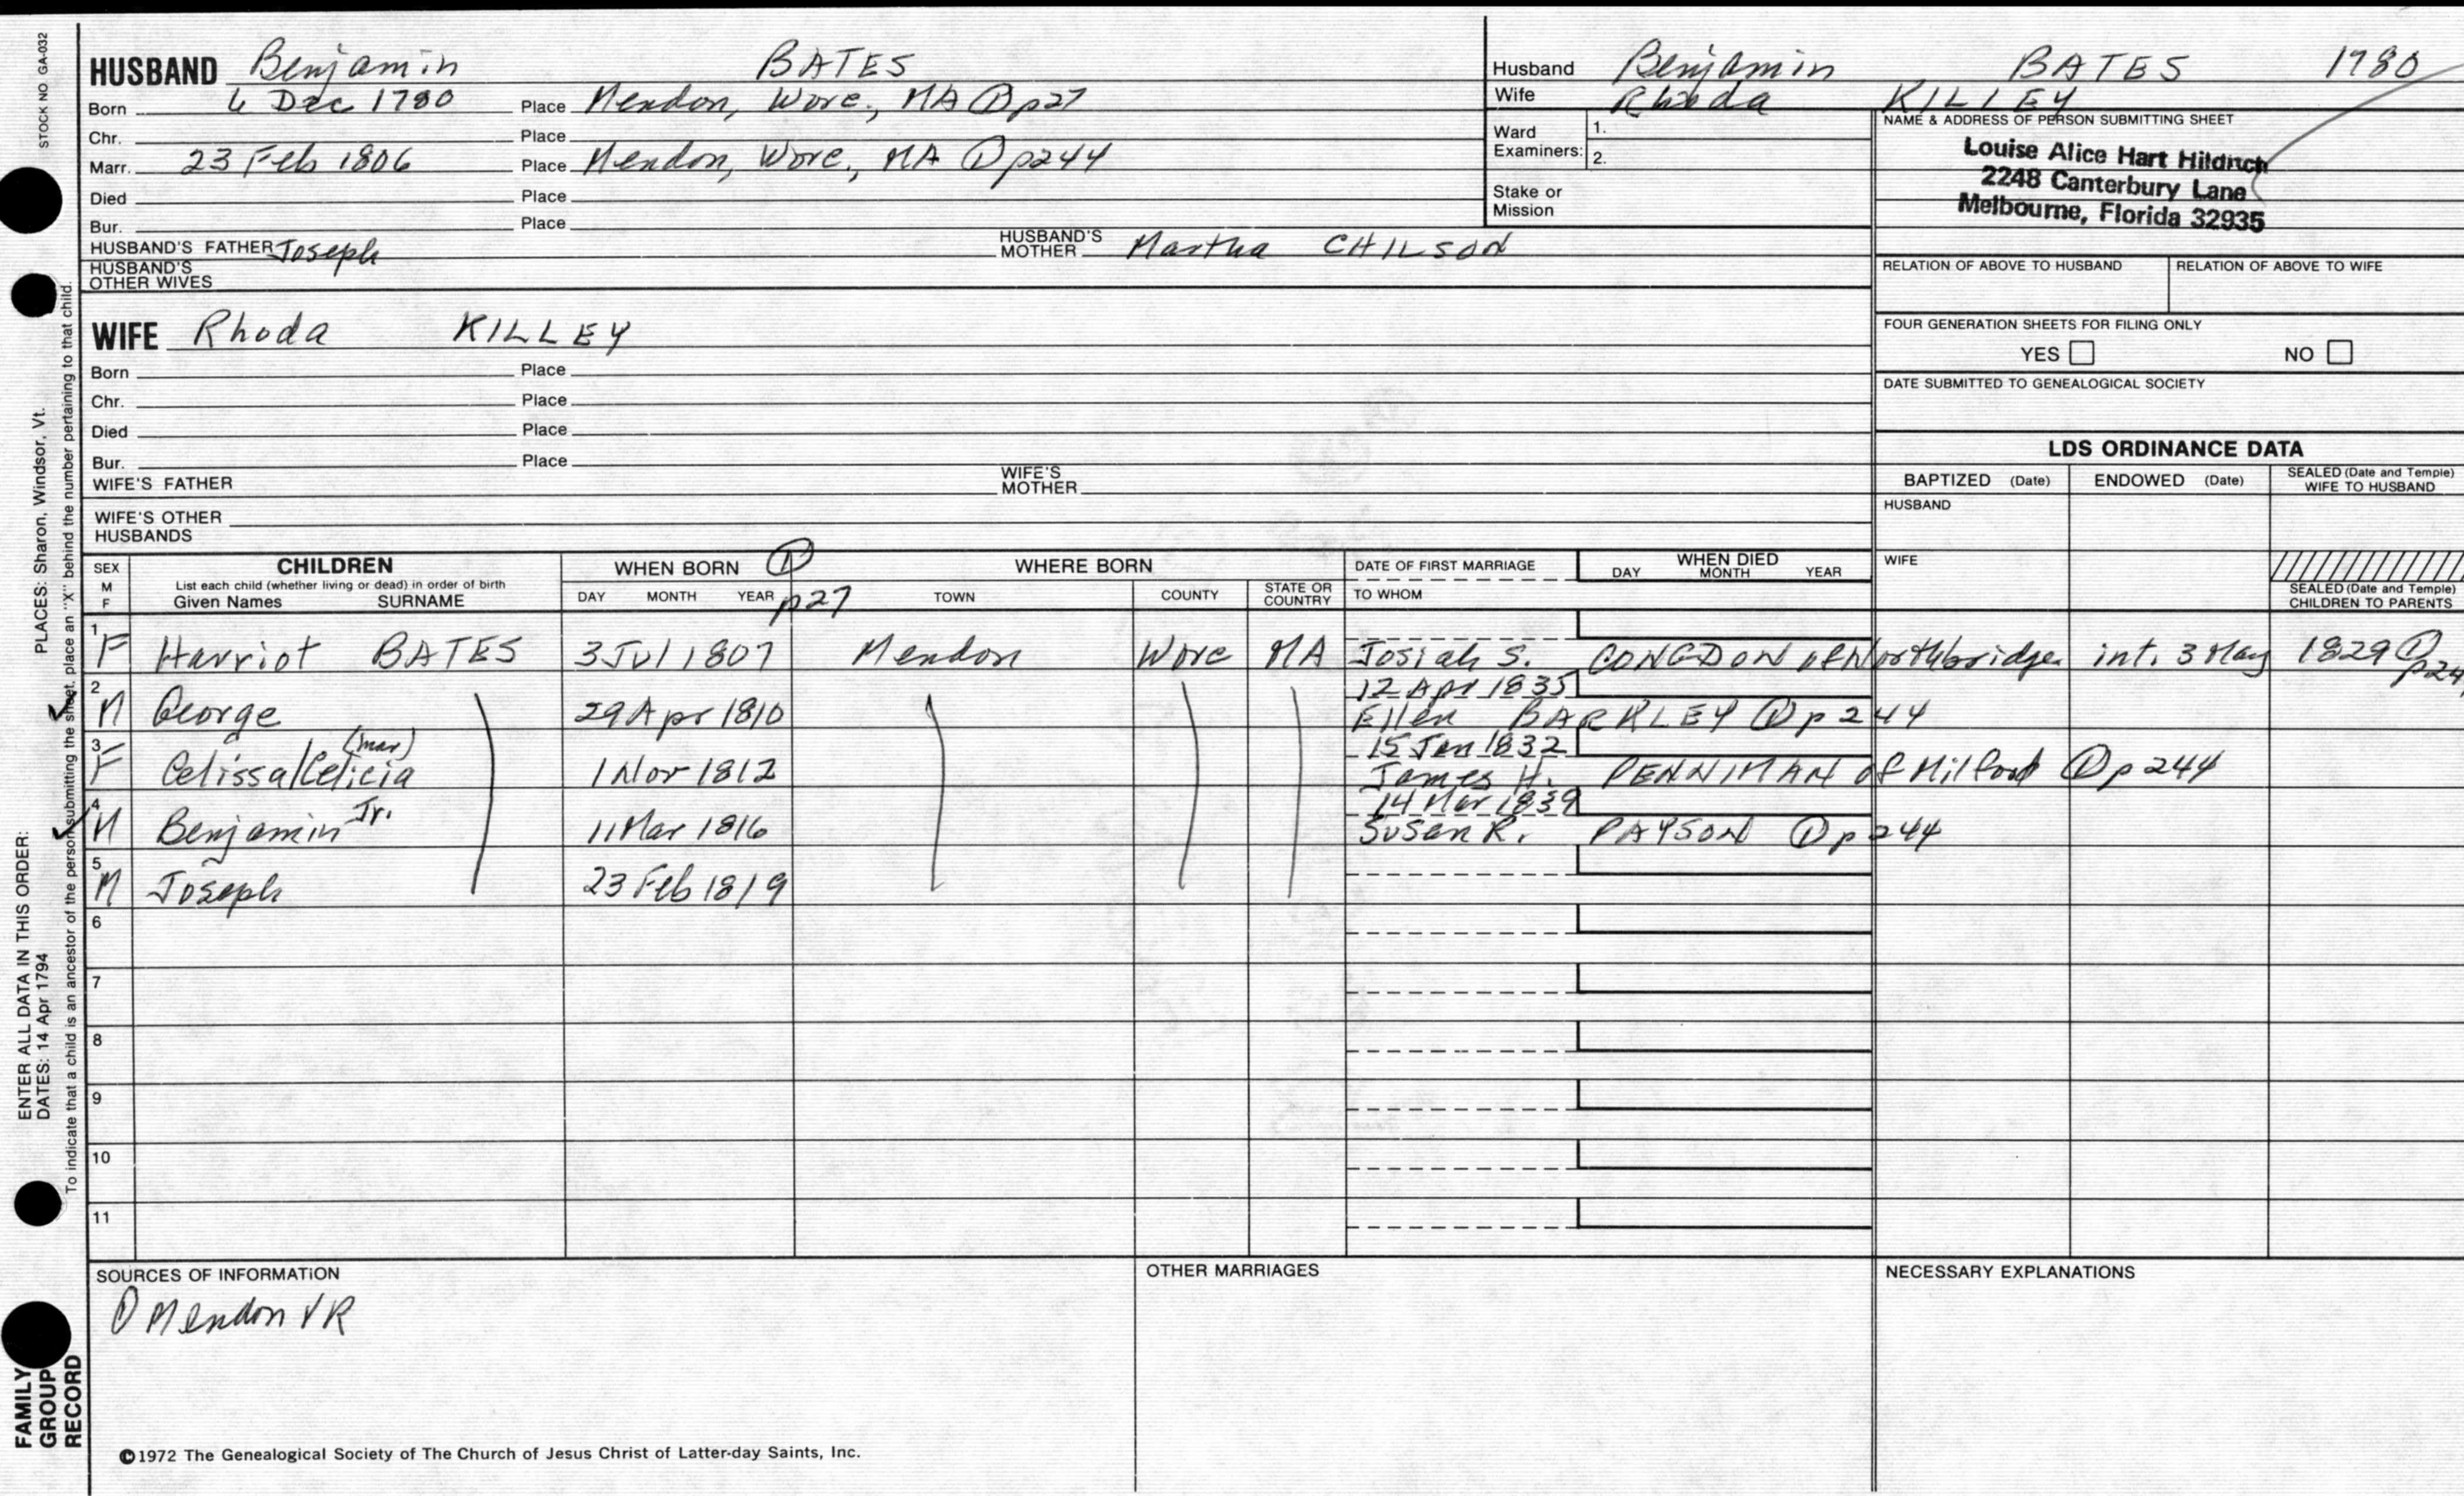 STOCK NO. GA-032
HUSBAND Benjamin BATES
Born 6 Dec 1780 Place Mendon, Worc., MA ① p27
Chr. Place
Marr. 23 Feb 1806 Place Mendon, Worc., MA ① p244
Died Place
Bur. Place
HUSBAND'S FATHER Joseph HUSBAND'S MOTHER Martha CHILSON
HUSBAND'S OTHER WIVES
Husband Benjamin BATES 1780
Wife Rhoda KILLEY
Ward Examiners: 1.
2.
Stake or Mission
NAME & ADDRESS OF PERSON SUBMITTING SHEET
Louise Alice Hart Hildrich
2248 Canterbury Lane
Melbourne, Florida 32935
RELATION OF ABOVE TO HUSBAND RELATION OF ABOVE TO WIFE
FOUR GENERATION SHEETS FOR FILING ONLY
YES NO
DATE SUBMITTED TO GENEALOGICAL SOCIETY
WIFE Rhoda KILLEY
Born Place
Chr. Place
Died Place
Bur. Place
WIFE'S FATHER WIFE'S MOTHER
WIFE'S OTHER HUSBANDS
LDS ORDINANCE DATA
BAPTIZED (Date) ENDOWED (Date) SEALED (Date and Temple) WIFE TO HUSBAND
HUSBAND
WIFE
SEALED (Date and Temple) CHILDREN TO PARENTS
SEX M F
CHILDREN
List each child (whether living or dead) in order of birth
Given Names SURNAME
WHEN BORN ① p27
DAY MONTH YEAR
WHERE BORN
TOWN COUNTY STATE OR COUNTRY
DATE OF FIRST MARRIAGE
TO WHOM
WHEN DIED
DAY MONTH YEAR
1 F Harriot BATES 3 Jul 1807 Mendon Worc MA Josiah S. CONGDON of Northbridge int. 3 May 1829 ① p24
12 Apr 1835
2 M George 29 Apr 1810 Ellen BARKLEY ① p244
15 Jan 1832
3 F Celissa/Celicia (mar) 1 Nov 1812 James H. PENNIMAN of Milford ① p244
14 Mar 1839
4 M Benjamin Jr. 11 Mar 1816 Susan R. PAYSON ① p244
5 M Joseph 23 Feb 1819
6
7
8
9
10
11
SOURCES OF INFORMATION
① Mendon VR
OTHER MARRIAGES
NECESSARY EXPLANATIONS
©1972 The Genealogical Society of The Church of Jesus Christ of Latter-day Saints, Inc.
ENTER ALL DATA IN THIS ORDER:
DATES: 14 Apr 1794 PLACES: Sharon, Windsor, Vt.
To indicate that a child is an ancestor of the person submitting the sheet, place an "X" behind the number pertaining to that child.
FAMILY
GROUP
RECORD